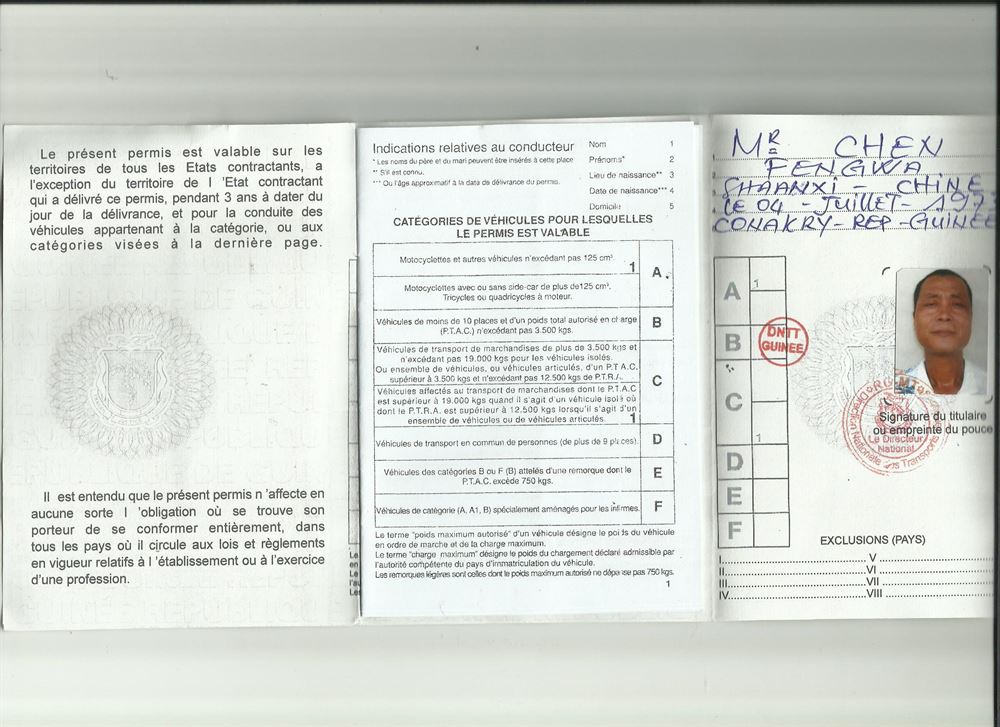 Le présent permis est valable sur les
territoires de tous les Etats contractants, a
l'exception du territoire de l 'Etat contractant
qui a délivré ce permis, pendant 3 ans à dater du
jour de la délivrance, et pour la conduite des
véhicules appartenant à la catégorie, ou aux
catégories visées à la dernière page.
Il est entendu que le présent permis n 'affecte en
aucune sorte l 'obligation où se trouve son
porteur de se conformer entièrement, dans
tous les pays où il circule aux lois et règlements
en vigueur relatifs à l 'établissement ou à l'exercice
d'une profession.
Indications relatives au conducteur
* Les noms du père et du mari peuvent être insérés à cette place
** S'il est connu.
*** Ou l'âges approximatif à la date de délivrance du permis.
Nom 1
Prénoms* 2
Lieu de naissance** 3
Date de naissance*** 4
Domicile 5
CATÉGORIES DE VÉHICULES POUR LESQUELLES
LE PERMIS EST VALABLE
Motocyclettes et autres véhicules n'excédant pas 125 cm³.
1
Motocyclettes avec ou sans side-car de plus de125 cm³.
Tricycles ou quadricycles à moteur.
A
Véhicules de moins de 10 places et d'un poids total autorisé en charge
(P.T.A.C.) n'excédant pas 3.500 kgs.
B
Véhicules de transport de marchandises de plus de 3.500 kgs et
n'excédant pas 19.000 kgs pour les véhicules isolés.
Ou ensemble de véhicules, ou véhicules articulés, d'un P.T.A.C.
supérieur à 3.500 kgs et n'excédant pas 12.500 kgs de P.T.R.A.
Véhicules affectés au transport de marchandises dont le P.T.A.C
est supérieur à 19.000 kgs quand il s'agit d'un véhicule isolé où
dont le P.T.R.A. est supérieur à 12.500 kgs lorsqu'il s'agit d'un
ensemble de véhicules ou de véhicules articulés.
1
C
Véhicules de transport en commun de personnes (de plus de 9 places).
D
Véhicules des catégories B ou F (B) attelés d'une remorque dont le
P.T.A.C. excède 750 kgs.
E
Véhicules de catégorie (A, A1, B) spécialement aménagés pour les infirmes.
F
Le terme "poids maximum autorisé" d'un véhicule désigne le poids du véhicule
en ordre de marche et de la charge maximum.
Le terme "charge maximum" désigne le poids du chargement déclaré admissible par
l'autorité compétente du pays d'immatriculation du véhicule.
Les remorques légères sont celles dont le poids maximum autorisé ne dépasse pas 750 kgs.
1
MR CHEN
FENGWA
SHAANXI - CHINE
LE 04 - JUILLET - 197
CONAKRY - REP - GUINEE
A
1
B
C
1
D
E
F
DNTT
GUINEE
Signature du titulaire
ou empreinte du pouce
Le Directeur
National
Direction Nationale des Transports
EXCLUSIONS (PAYS)
I V
II VI
III VII
IV VIII